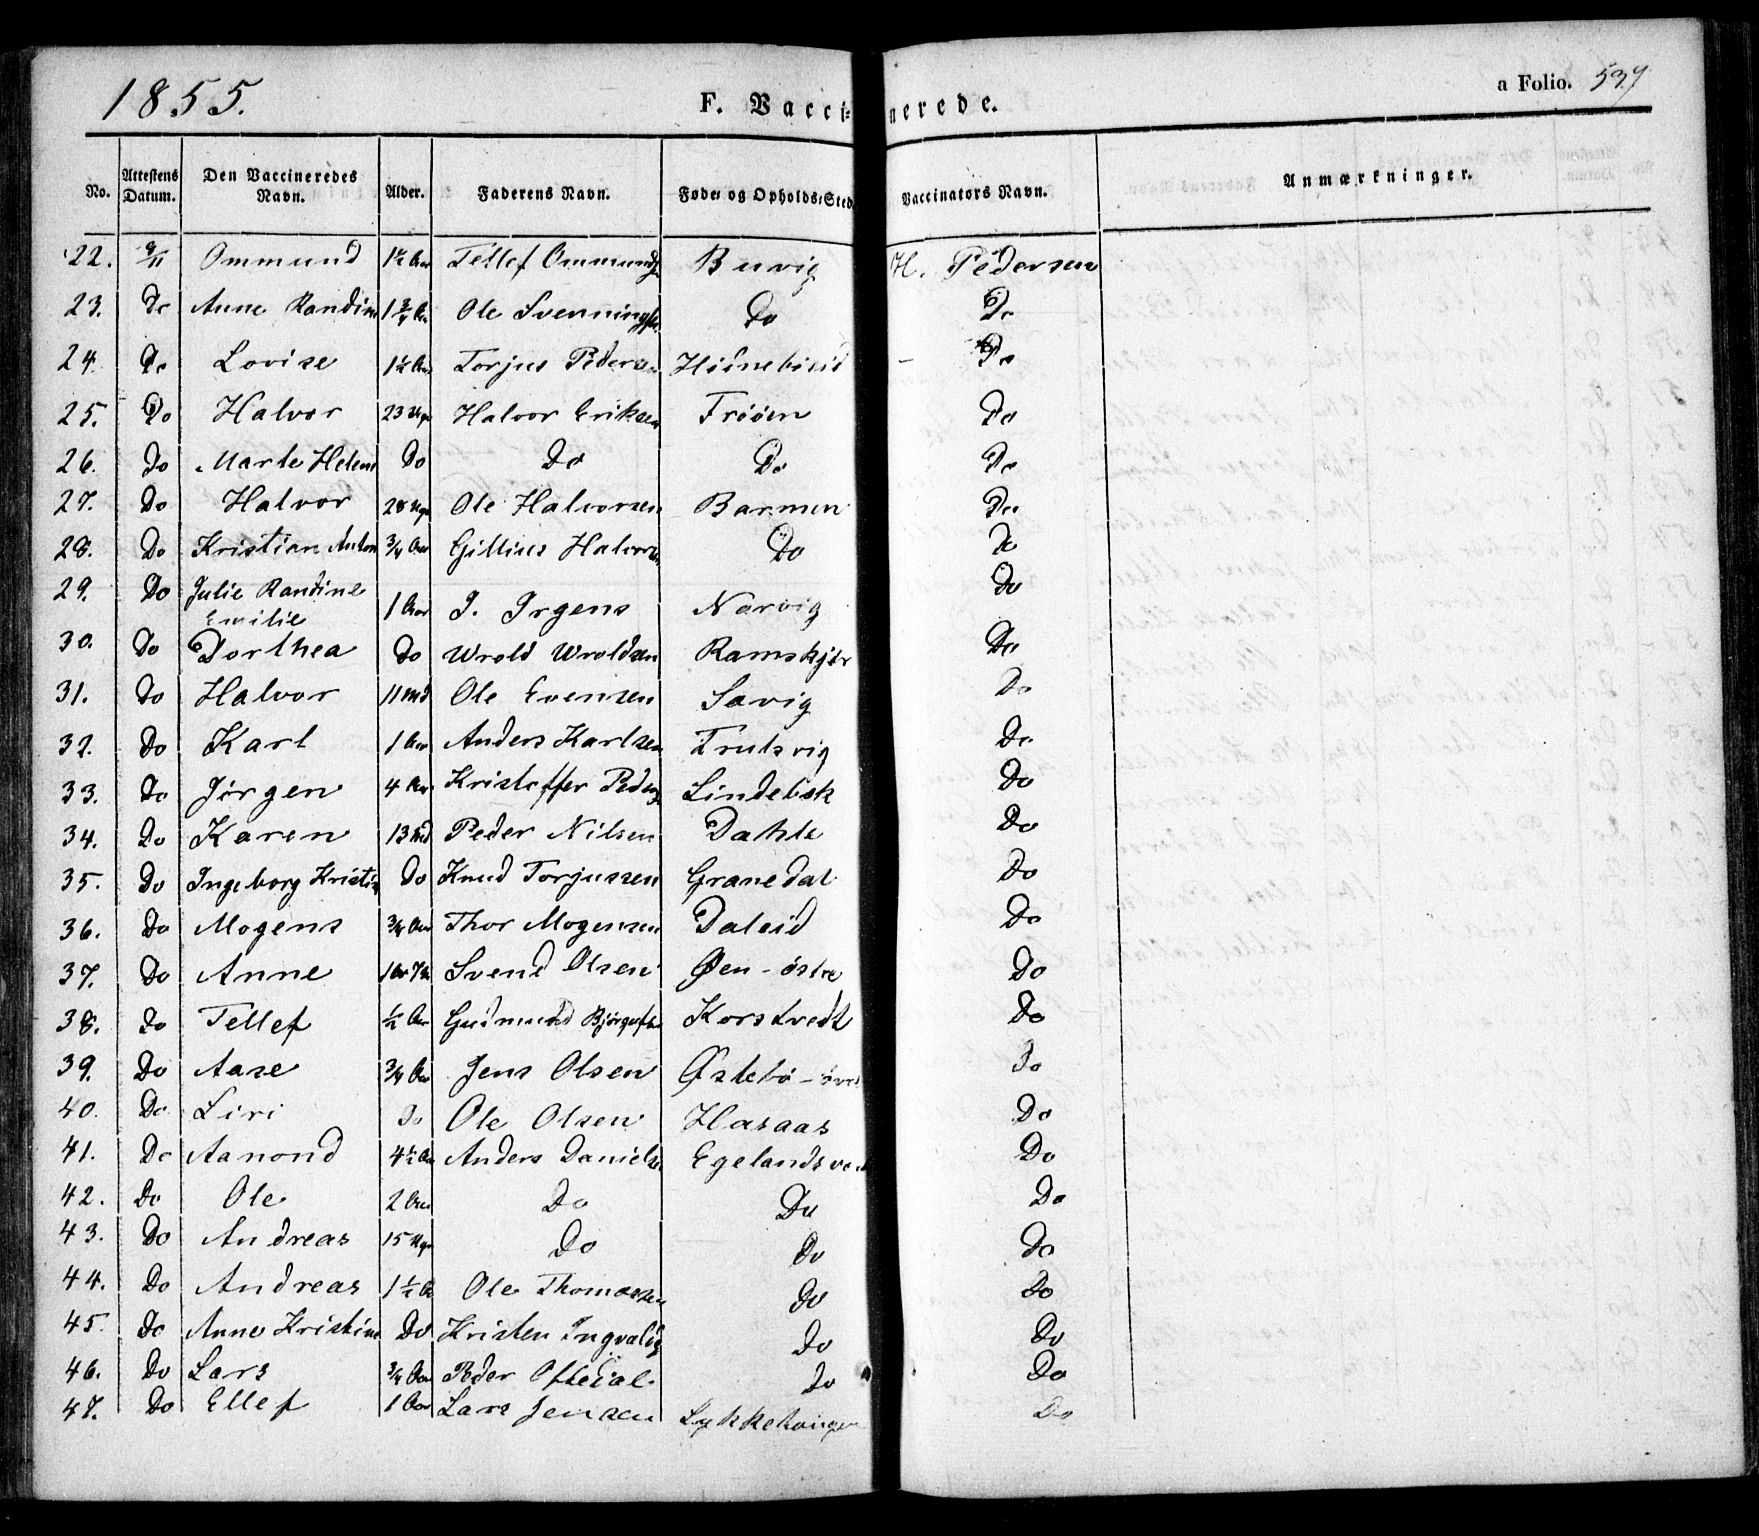 1855.
F. Vaccinerede.
a Folio. 537
No. Attestens Datum. Den Vaccineredes Navn. Alder. Faderens Navn. Føde- og Opholds-Sted Vaccinators Navn. Anmærkninger.
22. 9/11 Ommund 1½ Aar Tellef Ommunds Buvig H. Pedersen
23. Do Anne Randine 1¾ Aar Ole Svenningsen Do Do
24. Do Lovise 1½ Aar Torjus Pedersen Do
25. Do Halvor 23 Uger Halvor Eriksen Trøöen Do
26. Do Marte Helene Do Do Do Do
27. Do Halvor 28 Uger Ole Halvorsen Barmen Do
28. Do Kristian Anton ¾ Aar Gillius Halvorsen Do Do
29. Do Julie Randine Emilie 1 Aar J. Irgens Narvig Do
30. Do Dorthea Do Wrold Wroldsen Ramskjær Do
31. Do Halvor 11 Md Ole Evensen Savig Do
32. Do Karl 1 Aar Anders Karlsen Trulsvig Do
33. Do Jørgen 4 Aar Kristoffer Peders Lindebsk Do
34. Do Karen 13 Md Peder Nilsen Dahle Do
35. Do Ingeborg Kristin Do Knud Torjussen Granedal Do
36. Do Mogens ¾ Aar Thor Mogensen Daleid Do
37. Do Anne Svend Olsen Øen - östre Do
38. Do Tellef ½ Aar Gudmund Björgufsen Korstvedt Do
39. Do Aase ¾ Aar Jens Olsen Østebö - övre Do
40. Do Siri Do Ole Olsen Hasaas Do
41. Do Aanond 4½ Aar Anders Danielsen Egelandsve Do
42. Do Ole 2 Aar Do Do Do
43. Do Andreas 15 Uger Do Do Do
44. Do Andreas 1½ A Ole Thomassen Do Do
45. Do Anne Kristine Do Kristen Ingvalds Do Do
46. Do Lars ¾ Aar Peder Oftedal Do Do
47. Do Ellef 1 Aar Lars Jensen Do